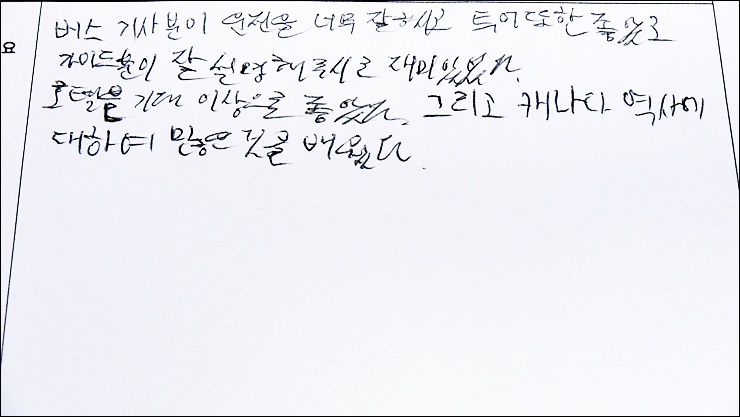 요
버스 기사분이 운전을 너무 잘하시고 투어또한 좋았고
가이드분이 잘 설명해주시고 재미있었다.
호텔은 기대 이상으로 좋았다. 그리고 캐나다 역사에
대하여 많은 것을 배웠다.